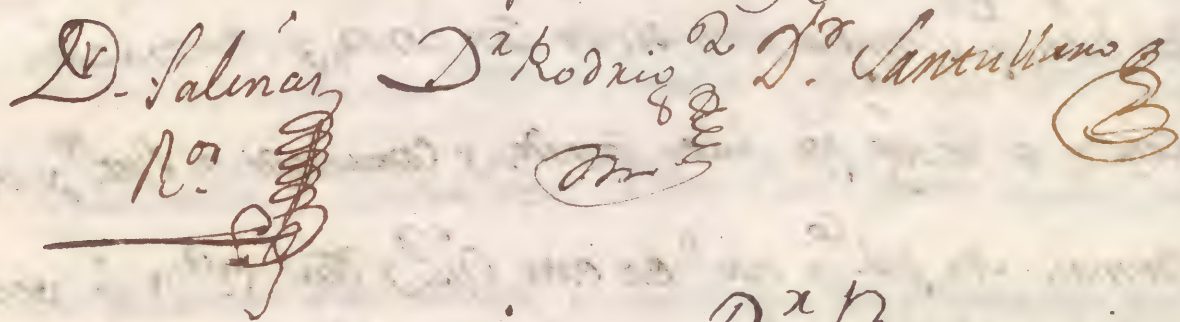 Dr. Salinas Dr Rodrigz Dr. Santullano
Ror.
Dr